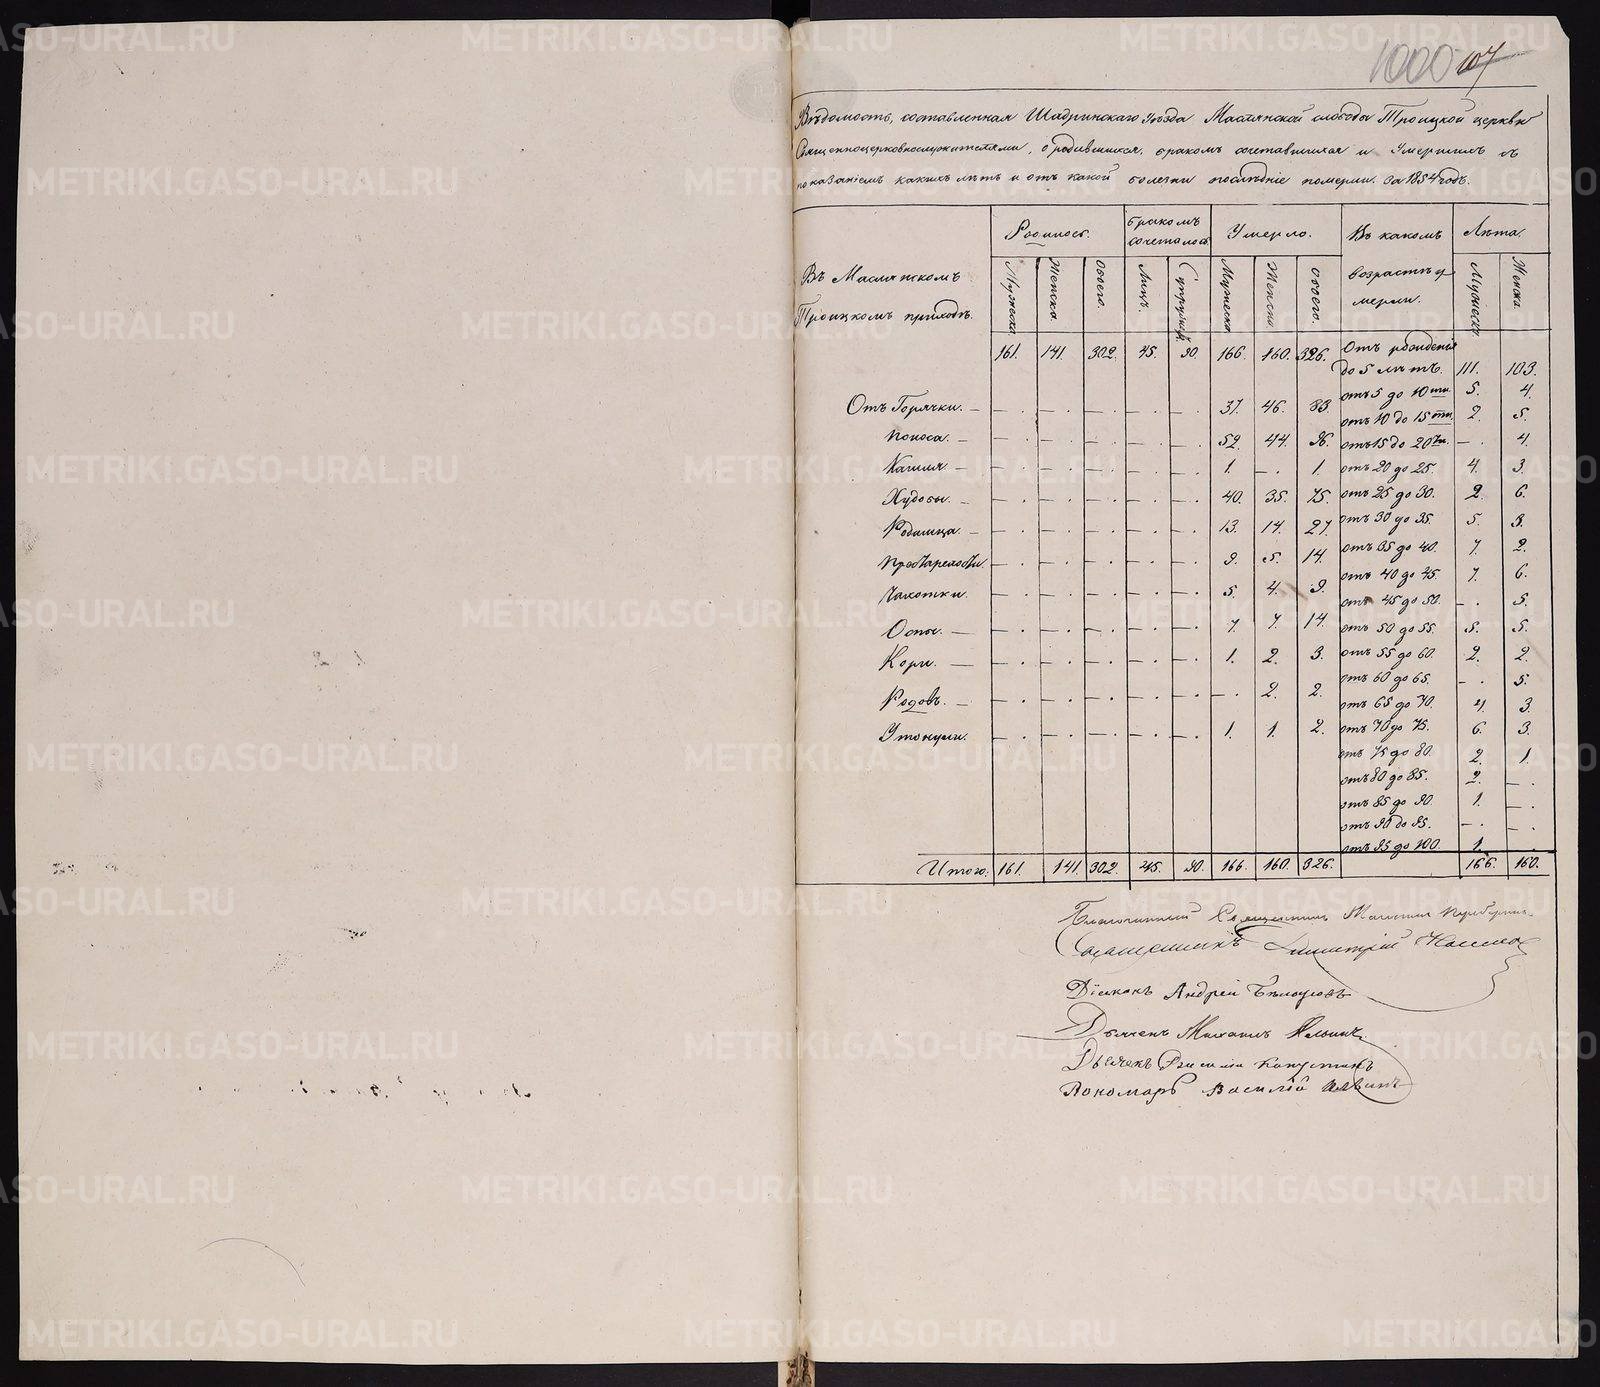 1000 107
Вѣдомость, составленная Шадринскаго уѣзда Маслянской слободы Троицкой церкви
Священноцерковнослужителями, о родившихся, бракомъ сочетавшихся и Умершихъ съ
показаніемъ какихъ лѣтъ и отъ какой болезни послѣдніе померли. За 1854 годъ.
Въ Маслянскомъ Троицкомъ приходѣ. Родилось. Бракомъ сочеталось Умерло. Въ какомъ возрастѣ умерли. Лѣта.
Мужеска Женска. Обоего. Лицъ. Супружес. Мужеска Женска Обоего. Мужеск. Женска.
161. 141. 302. 45. 90. 166. 160. 326. Отъ рожденія
до 5 лѣтъ. 111. 103.
отъ 5 до 10 ти. 5. 4.
Отъ Горячки. — — . — . — . — . — . 37. 46. 83.
отъ 10 до 15 ти. 2. 5.
Поноса. — — . — . — . — . — . 52. 44. 96. отъ 15 до 20 ти. — . 4.
Кашля. — — . — . — . — . — . 1. — . 1. отъ 20 до 25. 4. 3.
Худобы. — — . — . — . — . — . 40. 35. 75. отъ 25 до 30. 2. 6.
Родимца. — — . — . — . — . — . 13. 14. 27. отъ 30 до 35. 5. 3.
Престарелости. — . — . — . — . — . 9. 5. 14. отъ 35 до 40. 7. 2.
отъ 40 до 45. 7. 6.
Чахотки. — . — . — . — . — . 5. 4. 9. отъ 45 до 50. — . 5.
Оспы. — — . — . — . — . — . 7. 7. 14. отъ 50 до 55. 5. 5.
Кори. — — . — . — . — . — . 1. 2. 3. отъ 55 до 60. 2. 2.
отъ 60 до 65. — . 5.
Родовъ. — — . — . — . — . — . — . 2. 2. отъ 65 до 70. 4. 3.
Утонули. — . — . — . — . — . 1. 1. 2. отъ 70 до 75. 6. 3.
отъ 75 до 80. 2. 1.
отъ 80 до 85. 2. — .
отъ 85 до 90. 1. — .
отъ 90 до 95. — . — .
отъ 95 до 100. 1. .
Итого: 161. 141. 302. 45. 90. 166. 160. 326. 166. 160.
Благочинный Священникъ
Священникъ Димитрій
Діаконъ Андрей Бѣлоусовъ
Дьячекъ Михаилъ Ильинъ
Дьячекъ Капустинъ
Пономарь Василій
METRIKI.GASO-URAL.RU